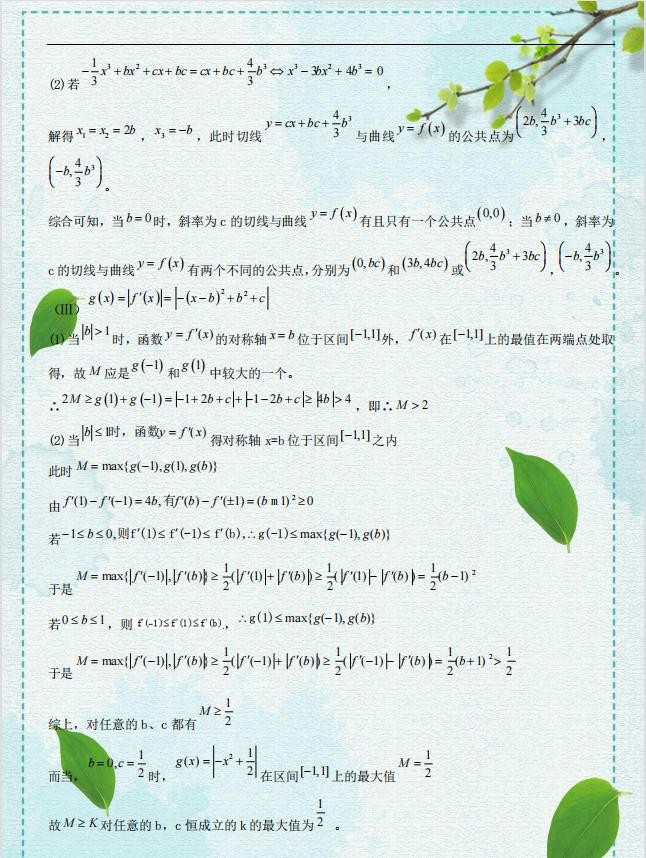 (2)若 $-\frac{1}{3}x^3+bx^2+cx+bc=cx+bc+\frac{4}{3}b^3 \Leftrightarrow x^3-3bx^2+4b^3=0$ ，
解得 $x_1=x_2=2b$ ， $x_3=-b$ ，此时切线 $y=cx+bc+\frac{4}{3}b^3$ 与曲线 $y=f(x)$ 的公共点为 $\left(2b,\frac{4}{3}b^3+3bc\right)$ ，
$\left(-b,\frac{4}{3}b^3\right)$ 。
综合可知，当 $b=0$ 时，斜率为 c 的切线与曲线 $y=f(x)$ 有且只有一个公共点 $(0,0)$ ；当 $b\neq 0$ ，斜率为
c 的切线与曲线 $y=f(x)$ 有两个不同的公共点，分别为 $(0,bc)$ 和 $(3b,4bc)$ 或 $\left(2b,\frac{4}{3}b^3+3bc\right)$ ， $\left(-b,\frac{4}{3}b^3\right)$ 。
（Ⅲ） $g(x)=|f'(x)|=|-(x-b)^2+b^2+c|$
(1)当 $|b|>1$ 时，函数 $y=f'(x)$ 的对称轴 $x=b$ 位于区间 $[-1,1]$ 外， $f'(x)$ 在 $[-1,1]$ 上的最值在两端点处取
得，故 $M$ 应是 $g(-1)$ 和 $g(1)$ 中较大的一个。
∴ $2M\geq g(1)+g(-1)=|-1+2b+c|+|-1-2b+c|\geq |4b|>4$ ，即∴ $M>2$
(2)当 $|b|\leq 1$时，函数$y=f'(x)$ 得对称轴 x=b 位于区间 $[-1,1]$ 之内
此时 $M=\max\{g(-1),g(1),g(b)\}$
由 $f'(1)-f'(-1)=4b$,有$f'(b)-f'(\pm 1)=(b\text{ m }1)^2\geq 0$
若 $-1\leq b\leq 0$,则$f'(1)\leq f'(-1)\leq f'(b)$,∴$g(-1)\leq \max\{g(-1),g(b)\}$
于是 $M=\max\{|f'(-1)|,|f'(b)|\}\geq \frac{1}{2}(|f'(1)|+|f'(b)|)\geq \frac{1}{2}(|f'(1)|-|f'(b)|)=\frac{1}{2}(b-1)^2$
若 $0\leq b\leq 1$ ，则 $f'(-1)\leq f'(1)\leq f'(b)$，∴$g(1)\leq \max\{g(-1),g(b)\}$
于是 $M=\max\{|f'(-1)|,|f'(b)|\}\geq \frac{1}{2}(|f'(-1)|+|f'(b)|)\geq \frac{1}{2}(|f'(-1)|-|f'(b)|)=\frac{1}{2}(b+1)^2>\frac{1}{2}$
综上，对任意的 b、c 都有 $M\geq \frac{1}{2}$
而当， $b=0,c=\frac{1}{2}$ 时， $g(x)=\left|-x^2+\frac{1}{2}\right|$ 在区间 $[-1,1]$ 上的最大值 $M=\frac{1}{2}$
故 $M\geq K$ 对任意的 b，c 恒成立的 k 的最大值为 $\frac{1}{2}$ 。